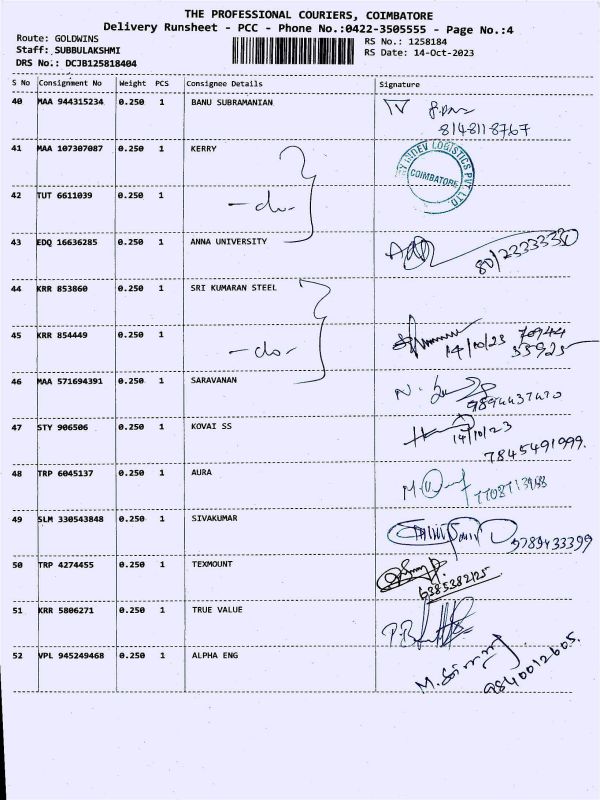 THE PROFESSIONAL COURIERS, COIMBATORE
Delivery Runsheet - PCC - Phone No.:0422-3505555 - Page No.:4
Route: GOLDWINS
Staff: SUBBULAKSHMI
DRS No.: DCJB125818404
RS No.: 1258184
RS Date: 14-Oct-2023
S No Consignment No Weight PCS Consignee Details Signature
40 MAA 944315234 0.250 1 BANU SUBRAMANIAN
8148118767
41 MAA 107307087 0.250 1 KERRY
LOGISTICS PVT. LTD.
COIMBATORE
42 TUT 6611039 0.250 1 -do-
43 EDQ 16636285 0.250 1 ANNA UNIVERSITY
44 KRR 853860 0.250 1 SRI KUMARAN STEEL
45 KRR 854449 0.250 1 -do- 14/10/23
46 MAA 571694391 0.250 1 SARAVANAN
47 STY 906506 0.250 1 KOVAI SS 14/10/23
7845491999.
48 TRP 6045137 0.250 1 AURA
49 SLM 330543848 0.250 1 SIVAKUMAR
9789433399
50 TRP 4274455 0.250 1 TEXMOUNT
6385382125
51 KRR 5806271 0.250 1 TRUE VALUE
52 VPL 945249468 0.250 1 ALPHA ENG
9840012605.